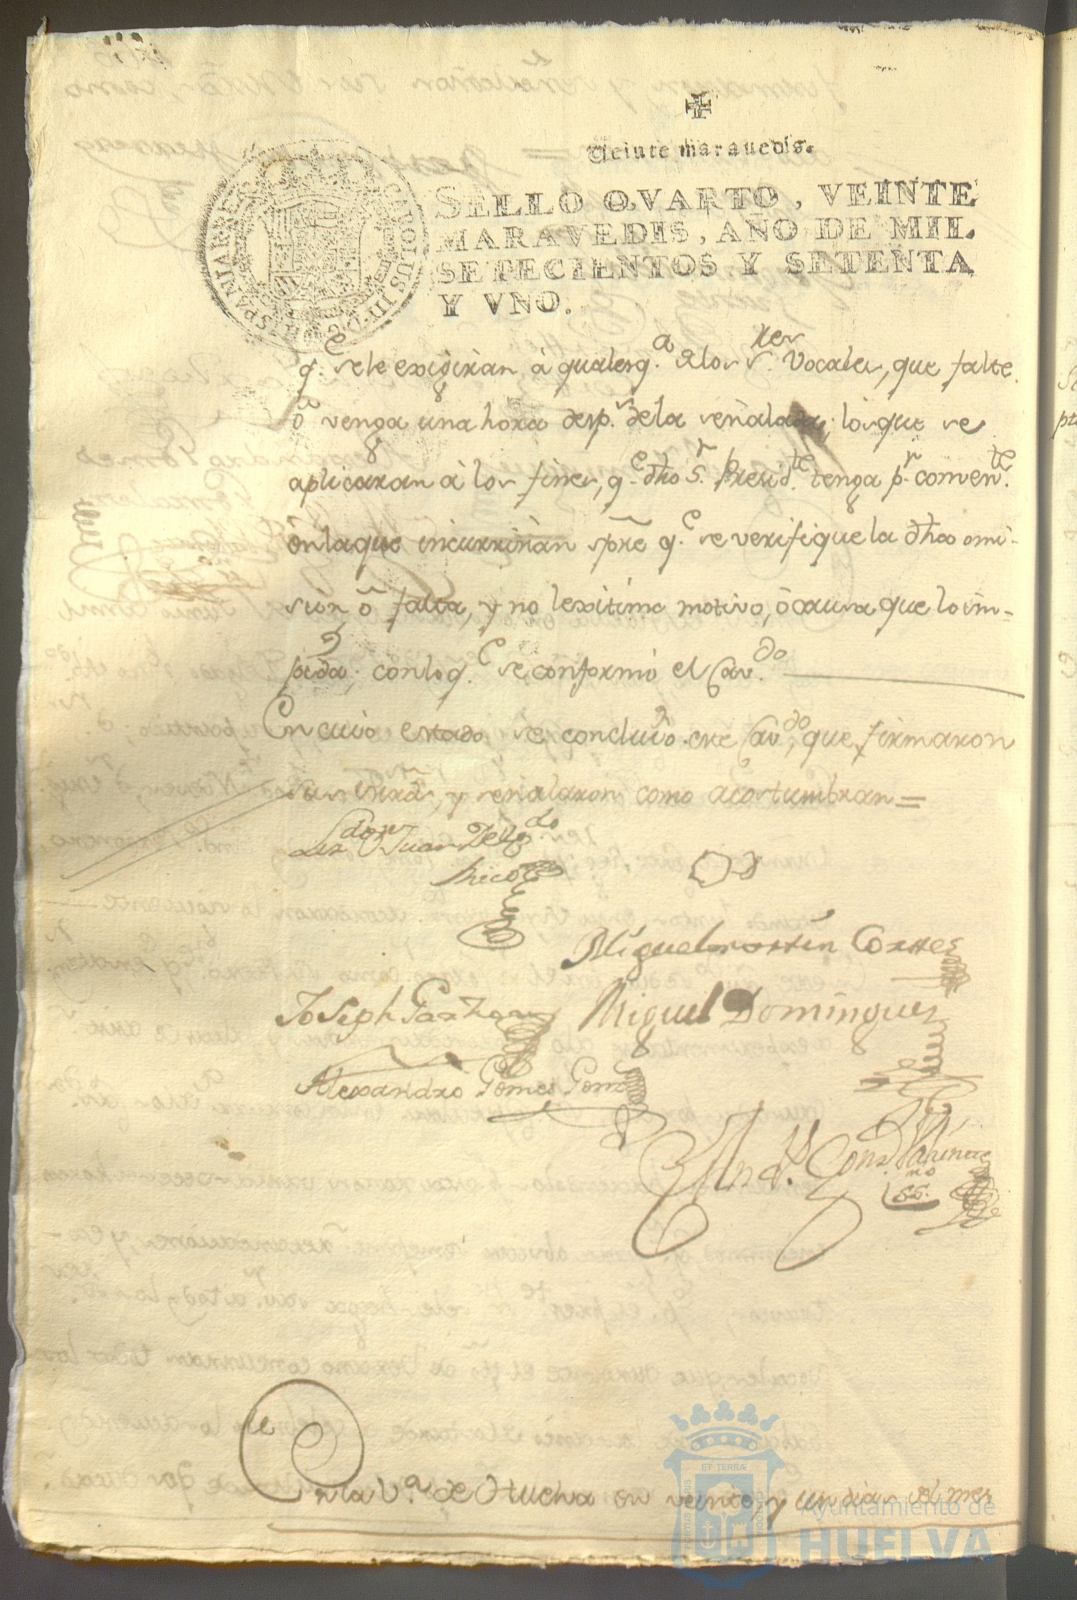 Veinte maravedis.
SELLO QVARTO, VEINTE
MARAVEDIS, AÑO DE MIL
SETECIENTOS Y SETENTA
Y VNO.
CAROLUS III D G HISPANIAR REX
q.e se le exigiràn à qualesq.a de los S.res Vocales, que falte
ò venga una hora desp.s de la señalada; los que se
aplicaran à los fines, q.e dho S.r Presid.te tenga p.r conven.te
en la que incurriràn spre q.e se verifique la dha omi-
sion, ò falta, y no lexitimo motivo, ò causa que lo im-
pida. con lo q.e se conformò el Cav.do
En cuio estado se concluiò este Cav.do, que firmaron
sus mrds, y señalaron como acostumbran =
Juan Delg.do
Rico
Miguel martin Cortes
Joseph Garzon Miguel Dominguez
Alexandro Gomes
En la V.a de Huelva en veinte, y un dias del mes
ET TERRÆ
Ayuntamiento de
HUELVA